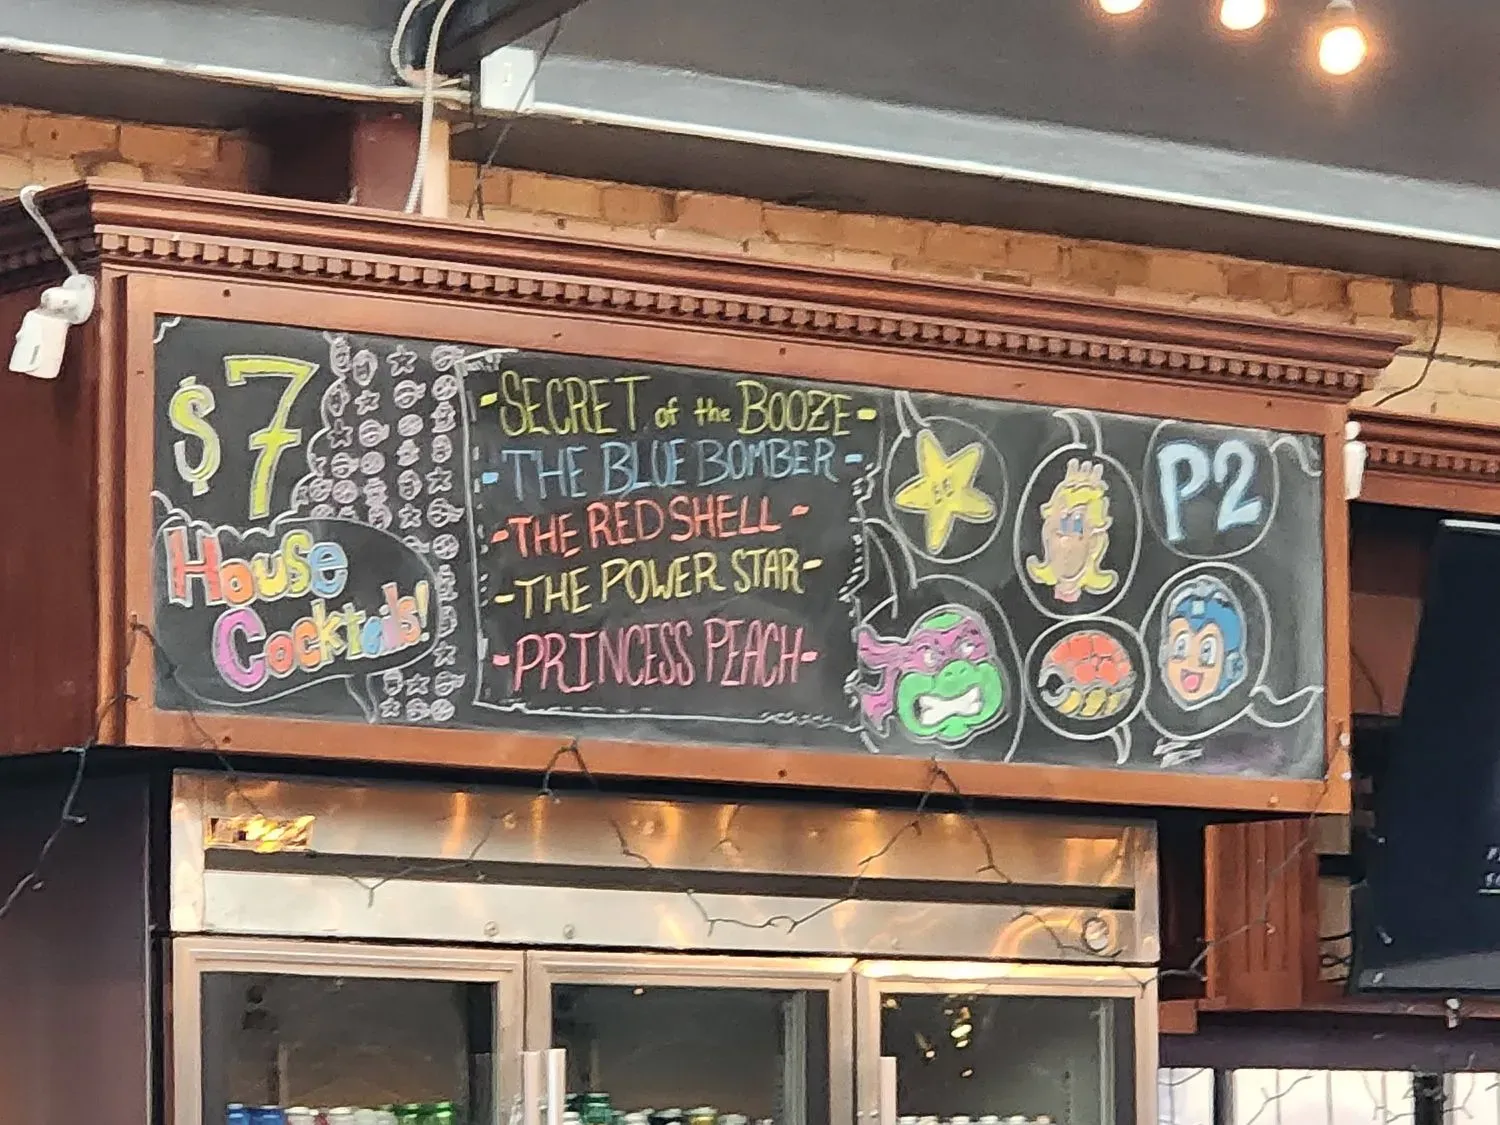 $7
House
Cocktails!
-SECRET of the BOOZE-
-THE BLUE BOMBER-
-THE RED SHELL-
-THE POWER STAR-
-PRINCESS PEACH-
P2